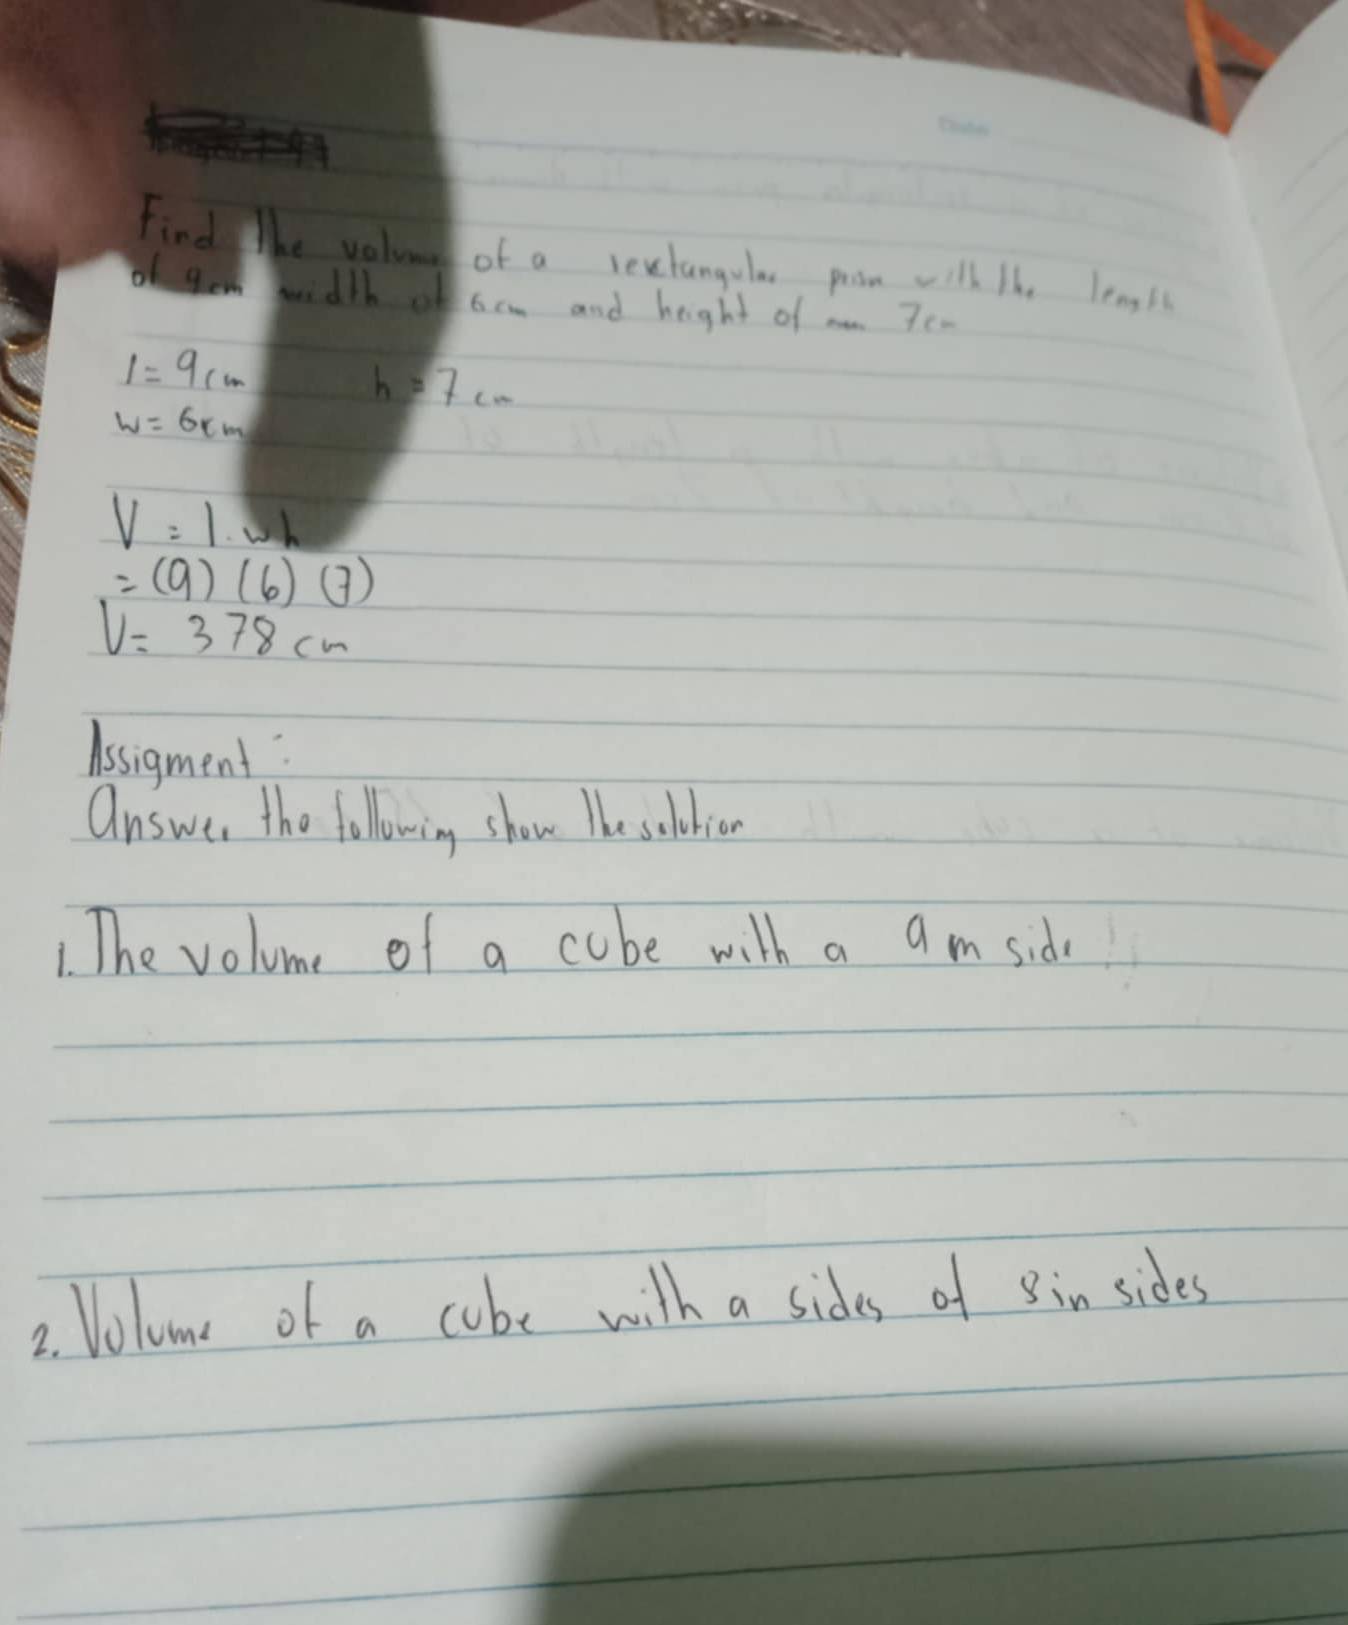 Find The volume of a rectangular prism with the length
of 9cm width of 6cm and height of 7cm
l = 9cm h = 7cm
w = 6cm
V = l.wh
= (9) (6) (7)
V = 378 cm
Assigment :
Answer the following show the solution
1. The volume of a cube with a 9 m side
2. Volume of a cube with a sides of 8 in sides